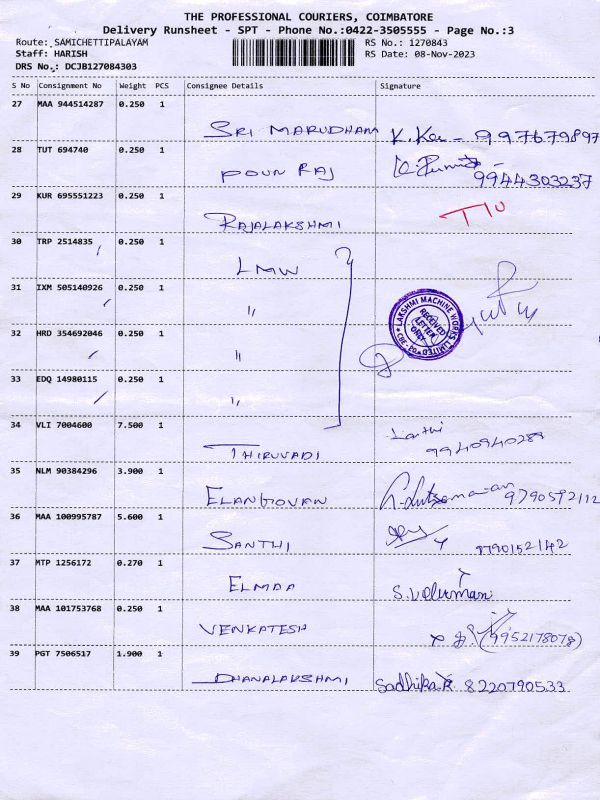 THE PROFESSIONAL COURIERS, COIMBATORE
Delivery Runsheet - SPT - Phone No.:0422-3505555 - Page No.:3
Route: SAMICHETTIPALAYAM RS No.: 1270843
Staff: HARISH RS Date: 08-Nov-2023
DRS No.: DCJB127084303
S No Consignment No Weight PCS Consignee Details Signature
27 MAA 944514287 0.250 1
SRI MARUDHAM K. 997679897
28 TUT 694740 0.250 1
POUN RAJ 9944303237
29 KUR 695551223 0.250 1
RAJALAKSHMI
30 TRP 2514835 0.250 1
LMW
31 IXM 505140926 0.250 1
"
LAKSHMI MACHINE WORKS LIMITED
RECEIVED
LETTER
ONLY
32 HRD 354692046 0.250 1
"
33 EDQ 14980115 0.250 1
"
34 VLI 7004600 7.500 1
THIRUVADI 9940940289
35 NLM 90384296 3.900 1
ELANGOVAN 9790592112
36 MAA 100995787 5.600 1
SANTHI 9790152142
37 MTP 1256172 0.270 1
ELMDA
38 MAA 101753768 0.250 1
VENKATESH (9952178078)
39 PGT 7506517 1.900 1
DHANALAKSHMI Sadhika.R 8220790533